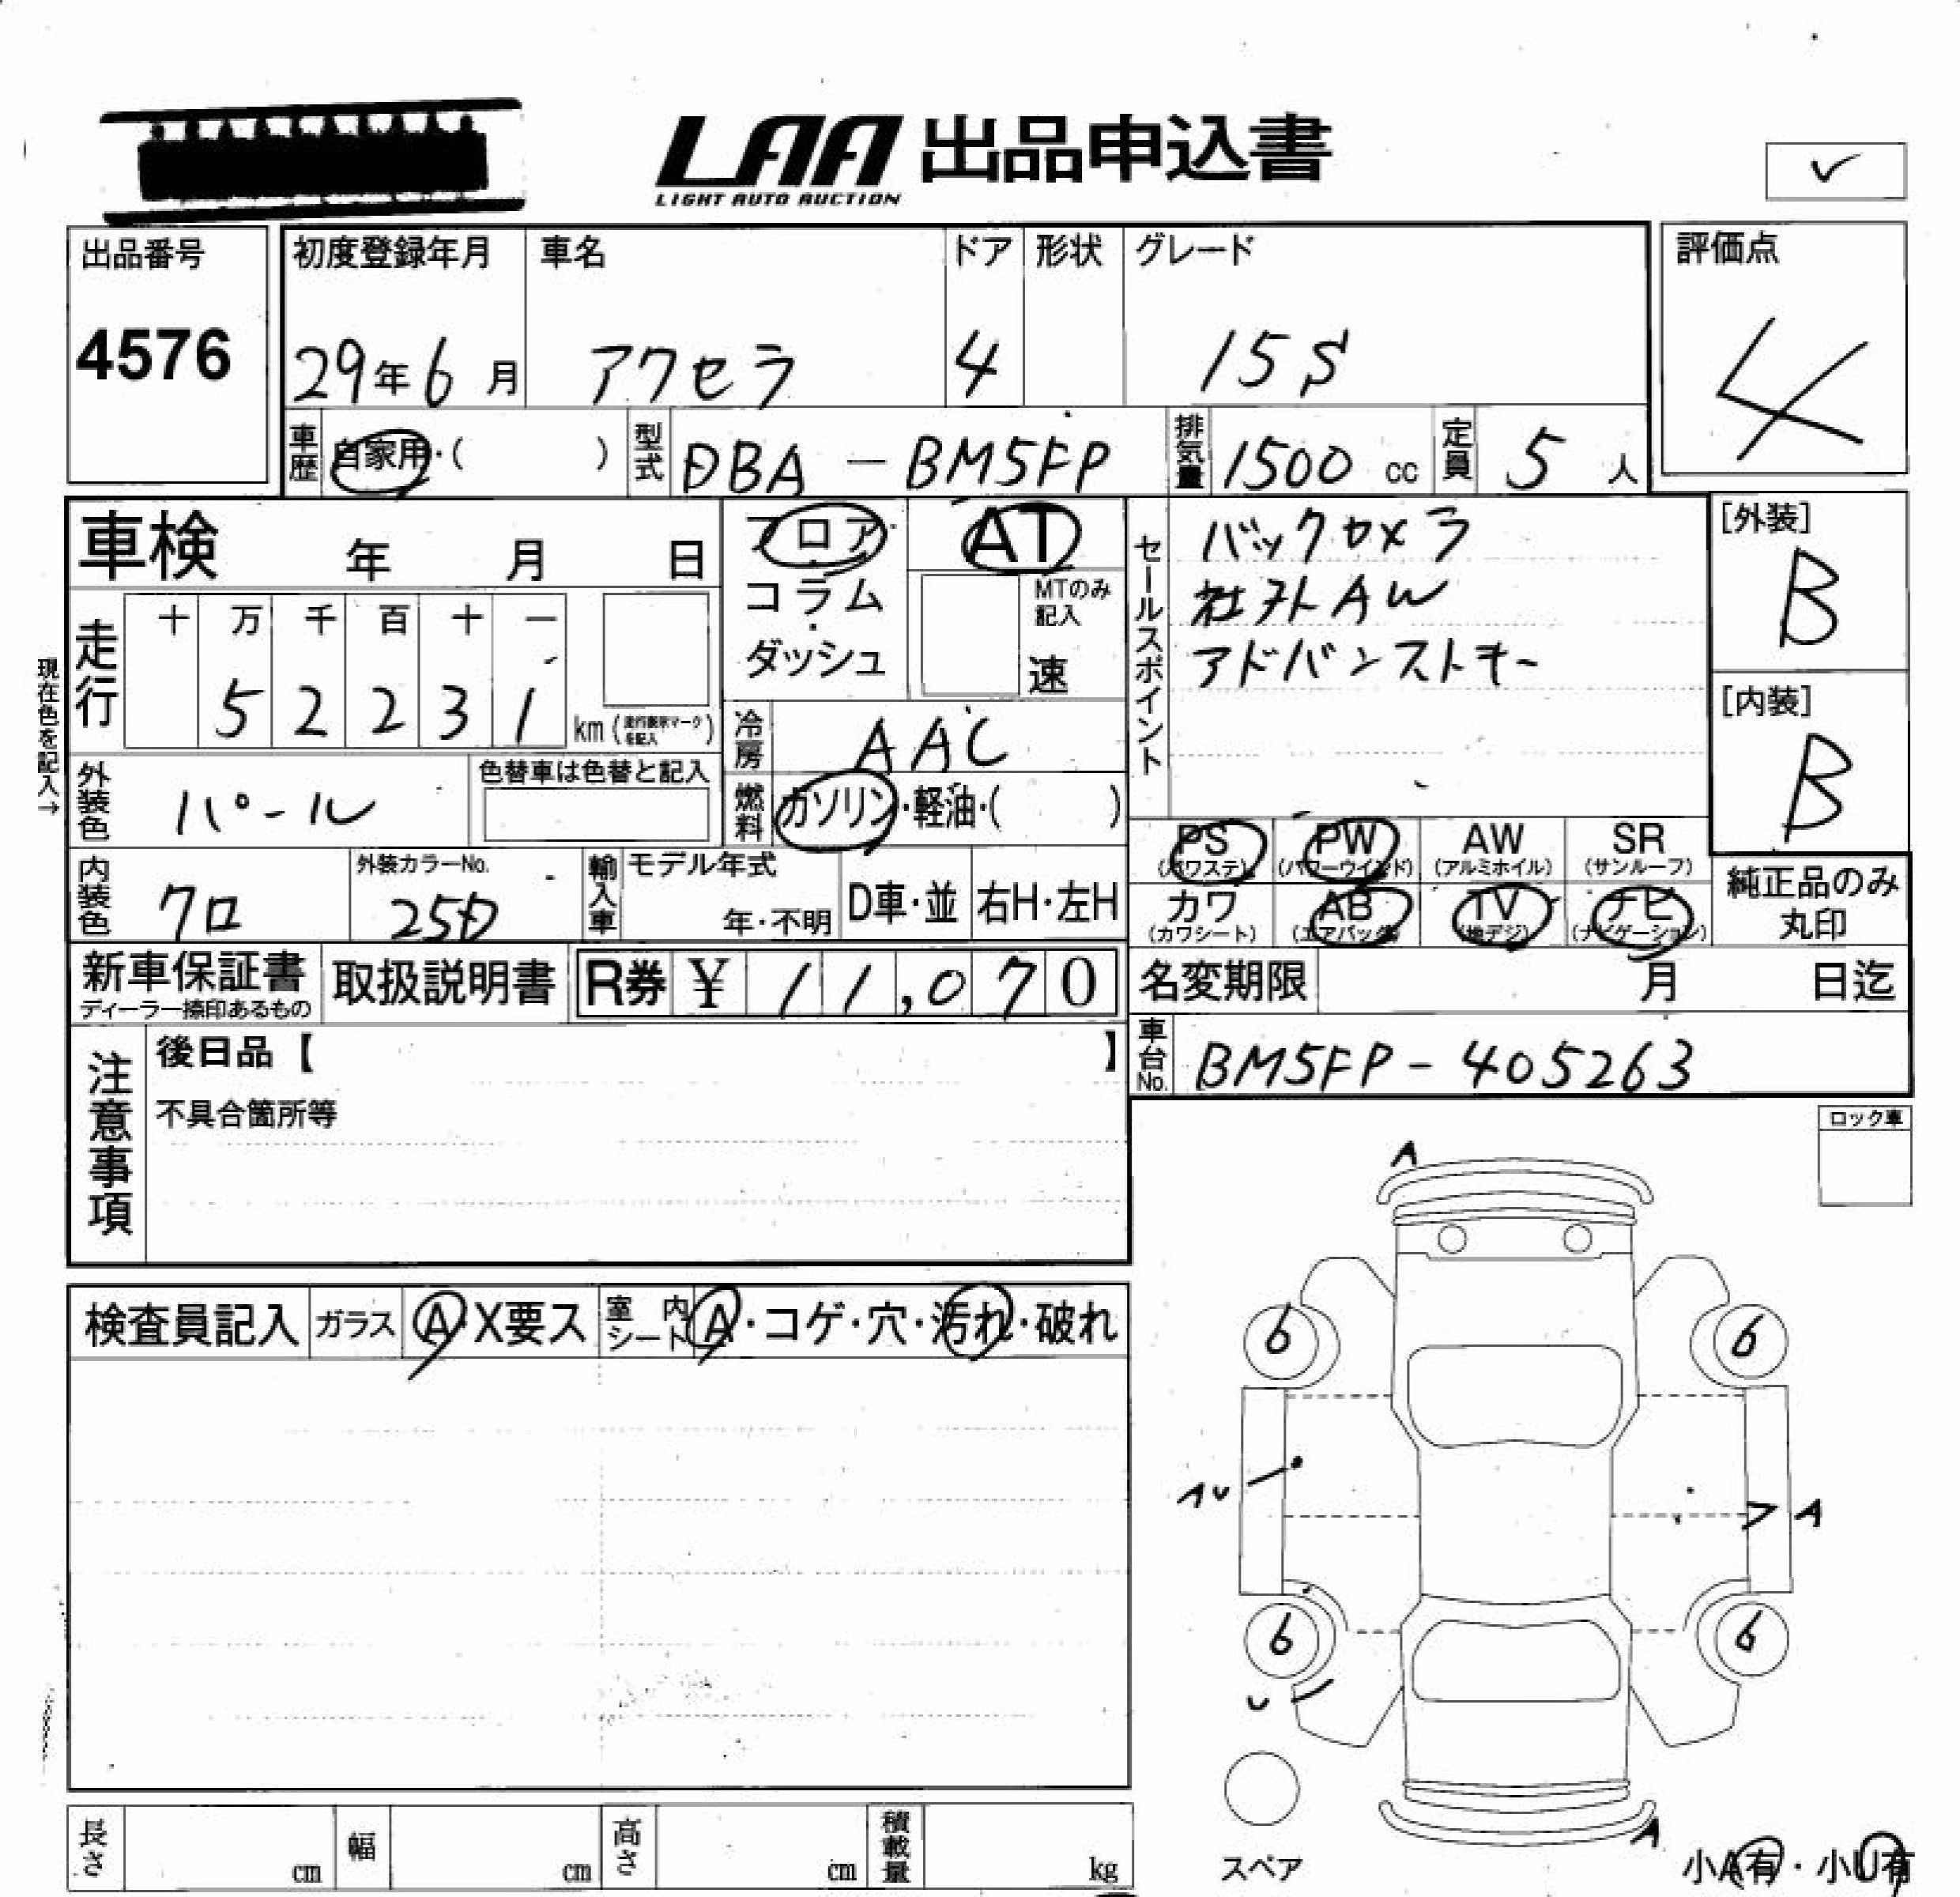 LAA 出品申込書
LIGHT AUTO AUCTION
✓
出品番号
4576
初度登録年月 車名 ドア 形状 グレード
29年6月 アクセラ 4 15S
評価点
4
車歴 自家用・( ) 型式 DBA-BM5FP 排気量 1500 cc 定員 5 人
車検 年 月 日
フロア・
コラム
・
ダッシュ
AT
MTのみ
記入
速
セールスポイント
バックカメラ
社外AW
アドバンストキー
[外装]
B
[内装]
B
現在色を記入→
走行
十 万 千 百 十 一
5 2 2 3 1 km(走行表示マークを記入)
冷房 AAC
外装色 パール
色替車は色替と記入
燃料 ガソリン・軽油・( )
PS PW AW SR
(パワステ) (パワーウインド) (アルミホイル) (サンルーフ)
カワ AB TV ナビ
(カワシート) (エアバッグ) (地デジ) (ナビゲーション)
純正品のみ
丸印
内装色 クロ
外装カラーNo.
25D
輸入車 モデル年式
年・不明 D車・並 右H・左H
新車保証書
ディーラー捺印あるもの
取扱説明書
R券 ¥ 11,070
名変期限 月 日迄
車台No. BM5FP-405263
注意事項
後日品【 】
不具合箇所等
ロック車
検査員記入 ガラス A・X要ス 室内シート A・コゲ・穴・汚れ・破れ
A
6 6
AU A
6 6
U
A
スペア
小A有・小U有
長さ cm 幅 cm 高さ cm 積載量 kg